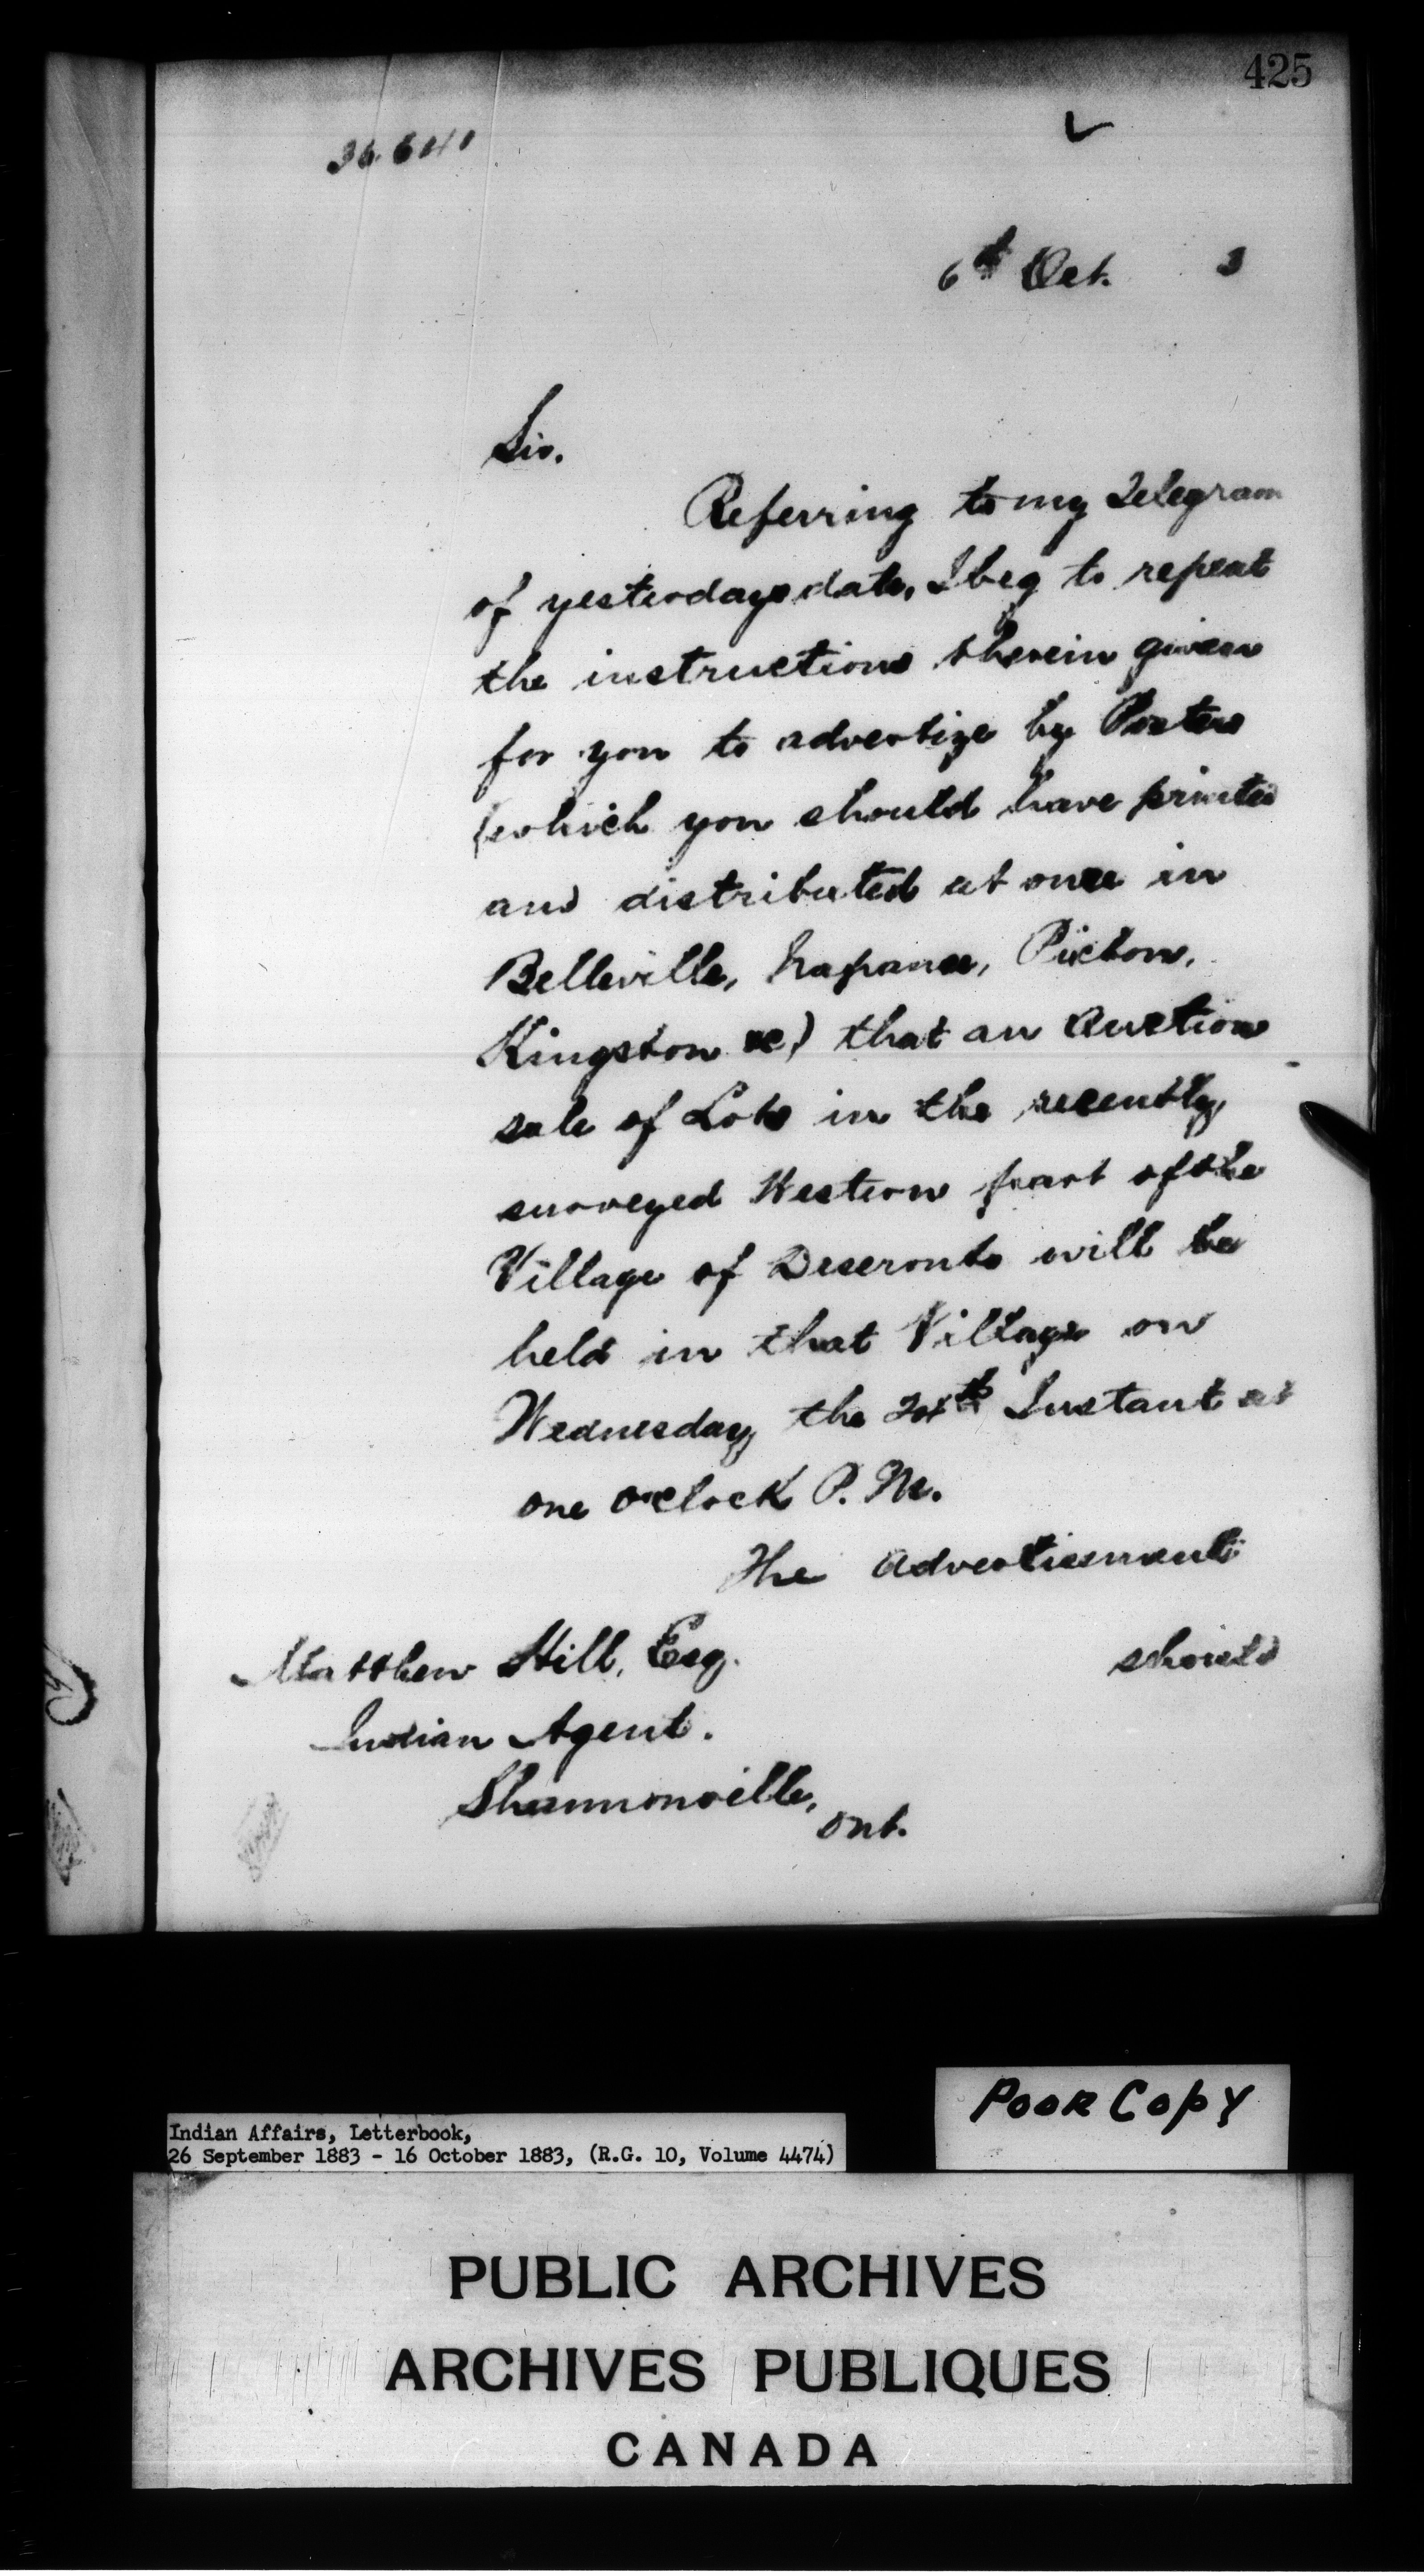 425
36.641
6th Oct. 3
Sir.
Referring to my Telegram
of yesterdays date, I beg to repeat
the instructions therein given
for you to advertize by Posters
(which you should have printed
and distributed at once in
Belleville, Napanee, Picton,
Kingston &c) that an Auction
sale of Lots in the recently
surveyed Western part of the
Village of Deseronto will be
held in that Village on
Wednesday the 24th Instant at
one o'clock P.M.
The advertisement
should
Matthew Hill, Esq.
Indian Agent.
Shannonville,
Ont.
Poor Copy
Indian Affairs, Letterbook,
26 September 1883 - 16 October 1883, (R.G. 10, Volume 4474)
PUBLIC ARCHIVES
ARCHIVES PUBLIQUES
CANADA